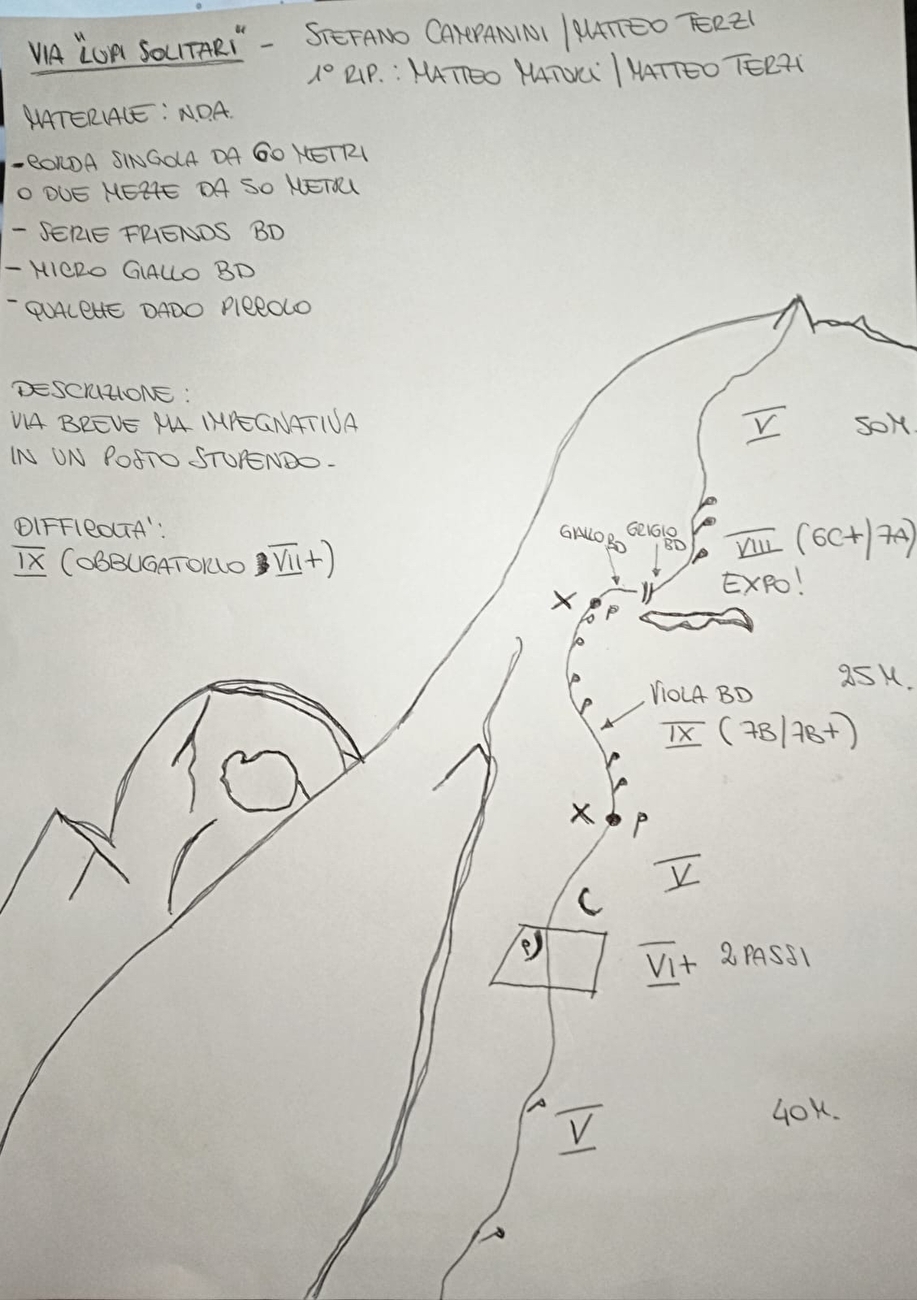 VIA "LUPI SOLITARI" - STEFANO CAMPANINI / MATTEO TERZI
1° RIP.: MATTEO MATULI / MATTEO TERZI
MATERIALE: N.D.A.
- CORDA SINGOLA DA 60 METRI
O DUE MEZZE DA 50 METRI
- SERIE FRIENDS BD
- MICRO GIALLO BD
- QUALCHE DADO PICCOLO
DESCRIZIONE:
VIA BREVE MA IMPEGNATIVA
IN UN POSTO STUPENDO -
DIFFICOLTA':
IX (OBBLIGATORIO VII+)
V 50M.
GIALLO BD
GRIGIO BD
VIII (6C+/7A)
EXPO!
X P
25M.
VIOLA BD
IX (7B/7B+)
X P
V
C
P
VI+ 2 PASSI
40M.
V